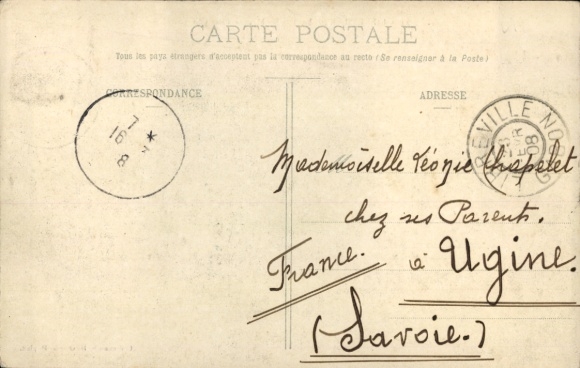 CARTE POSTALE
Tous les pays étrangers n'acceptent pas la correspondance au recto (Se renseigner à la Poste)
CORRESPONDANCE
ADRESSE
7
16
8
REVILLE
08
Mademoiselle Léonie Chapelet
chez ses Parents.
France. à Ugine.
(Savoie.)